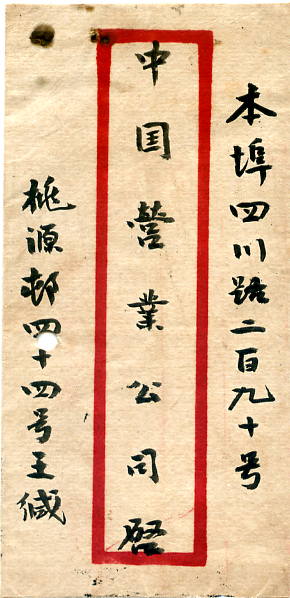 本埠四川路二百九十号
中国营業公司啓
桃源邨四十四号王缄